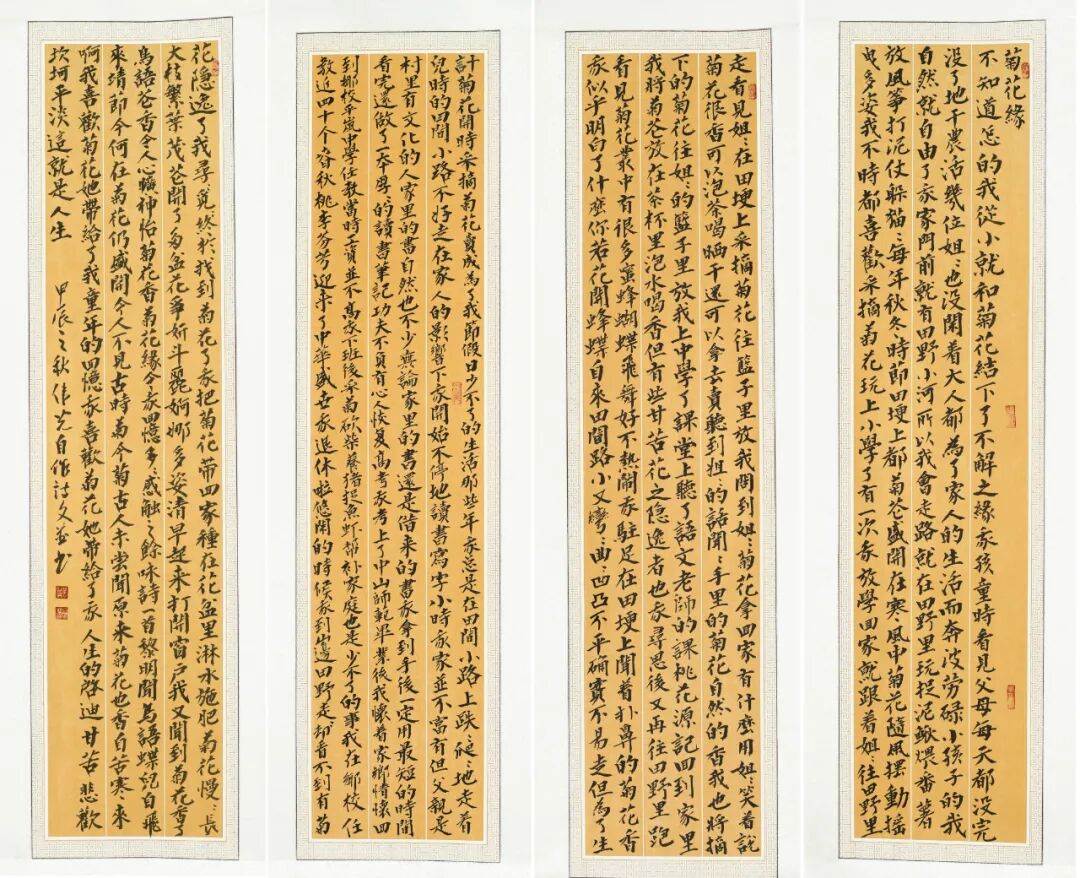 菊花緣
不知道怎的我從小就和菊花結下了不解之緣家孩童時看見父母每天都没完
没了地干農活幾位姐〻也没閑着大人都為了家人的生活而奔波勞碌小孩子的我
自然就自由了家家門前就有田野小河所以我會走路就在田野里玩捉泥鳅煨番薯
放風箏打泥仗躲猫〻每年秋冬時節田埂上都菊花盛開在寒風中菊花隨風摆動摇
曳多姿我不時都喜歡采摘菊花玩上小學了有一次家放學回家就跟着姐〻往田野里
走看見姐〻在田埂上采摘菊花往籃子里放我問到姐〻菊花拿回家有什麼用姐〻笑着說
菊花很香可以泡茶喝晒干還可以拿去賣聽到姐〻的話聞〻手里的菊花自然的香我也將摘
下的菊花往姐〻的籃子里放我上中學了課堂上聽了語文老師的課桃花源記回到家里
我將菊花放在茶杯里泡水喝香但有些甘苦花之隐逸者也家尋思後又再往田野里跑
看見菊花叢中有很多蜜蜂蝴蝶飛舞好不熱鬧家駐足在田埂上聞着扑鼻的菊花香
家似乎明白了什麼你若花開蜂蝶自來田間路小又彎〻曲〻凹凸不平確實不易走但為了生
計菊花開時采摘菊花賣成為了我節假日少不了的生活那些年家总是在田間小路上跌〻爬〻地走着
兒時的田間小路不好走在家人的影響下家開始不停地讀書寫字小時家家並不富有但父親是
村里有文化的人家里的書自然也不少無論家里的書還是借来的書家拿到手後一定用最短的時間
看完還做了本厚〻的讀書筆記功夫不負有心人恢复高考家考上了中山師範畢業後我懷着家鄉情懷回
到鄉校平嵐中學任教當時工資並不高家下班後采菊砍柴養猪捉魚虾帮补家庭也是少不了的事我在鄉校任
教近四十个春秋桃李芬芳迎来了中華盛世家退休啦悠閑的時候家到山邊田野走却看不到有菊
花隐逸了我尋覓終於我到菊花了家把菊花帶回家種在花盆里淋水施肥菊花慢〻長
大枝繁葉茂花開了多盆花争妍斗麗婀娜多姿清早起来打開窗户我又聞到菊花香了
鸟語花香令人心曠神怡菊花香菊花緣令家回憶多〻感触〻餘味詩一首黎明聞鸟語蝶兒自飛
來靖節今何在菊花仍盛開今人不見古時菊今菊古人未尝聞原来菊花也香自苦寒來
啊我喜歡菊花她帶給了我童年的回憶家喜歡菊花她帶給了家人生的啟迪甘苦悲歡
坎坷平淡這就是人生
甲辰之秋偉光自作詩文並書